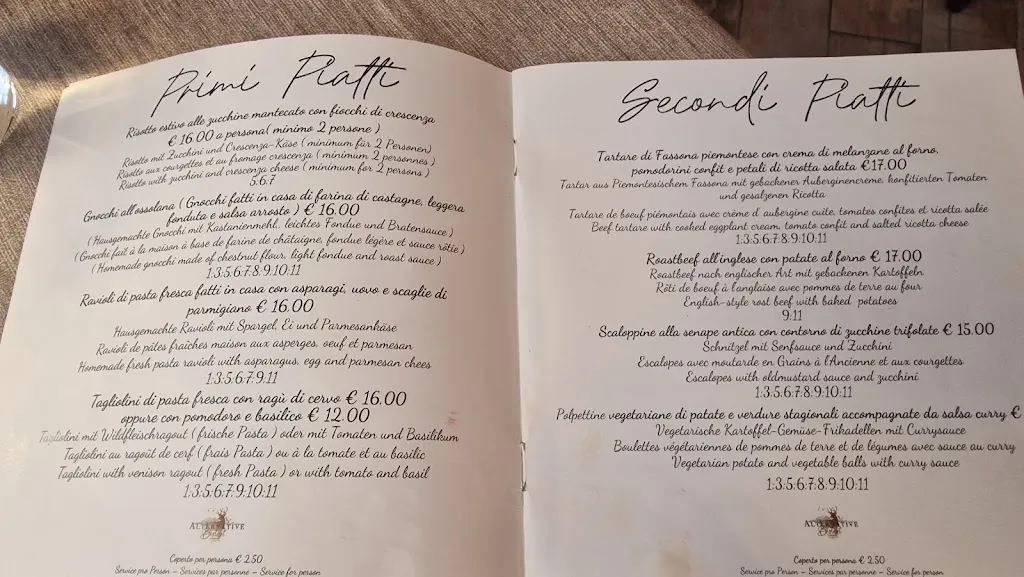 Primi Piatti
Risotto estivo alle zucchine mantecato con fiocchi di crescenza
€ 16.00 a persona( minimo 2 persone )
Risotto mit Zucchini und Crescenza-Käse ( minimum für 2 Personen)
Risotto aux courgettes et au fromage crescenza ( minimum 2 personnes )
Risotto with zucchini and crescenza cheese ( minimum for 2 persons )
5;6;7
Gnocchi all'ossolana ( Gnocchi fatti in casa di farina di castagne, leggera
fonduta e salsa arrosto ) € 16.00
( Hausgemachte Gnocchi mit Kastanienmehl, leichtes Fondue und Bratensauce )
( Gnocchi fait à la maison à base de farine de châtaigne, fondue légère et sauce rôtie )
( Homemade gnocchi made of chestnut flour, light fondue and roast sauce )
1;3;5;6;7;8;9;10;11
Ravioli di pasta fresca fatti in casa con asparagi, uovo e scaglie di
parmigiano € 16.00
Hausgemachte Ravioli mit Spargel, Ei und Parmesankäse
Ravioli de pâtes fraîches maison aux asperges, oeuf et parmesan
Homemade fresh pasta ravioli with asparagus, egg and parmesan chees
1;3;5;6;7;9;11
Tagliolini di pasta fresca con ragù di cervo € 16.00
oppure con pomodoro e basilico € 12.00
Tagliolini mit Wildfleischragout ( frische Pasta ) oder mit Tomaten und Basilikum
Tagliolini au ragoût de cerf ( frais Pasta ) ou à la tomate et au basilic
Tagliolini with venison ragout ( fresh Pasta ) or with tomato and basil
1;3;5;6;7;9;10;11
ALTERNATIVE
Coperto per persona € 2.50
Service pro Person – Services par personne – Service for person
Secondi Piatti
Tartare di Fassona piemontese con crema di melanzane al forno,
pomodorini confit e petali di ricotta salata €17.00
Tartar aus Piemontesischem Fassona mit gebackener Auberginencreme, konfitierten Tomaten
und gesalzenen Ricotta
Tartare de boeuf piémontais avec crème d' aubergine cuite, tomates confites et ricotta salée
Beef tartare with cooked eggplant cream, tomato confit and salted ricotta cheese
1;3;5;6;7;8;9;10;11
Roastbeef all'inglese con patate al forno € 17.00
Roastbeef nach englischer Art mit gebackenen Kartoffeln
Rôti de boeuf à l'anglaise avec pommes de terre au four
English-style rost beef with baked potatoes
9;11
Scaloppine alla senape antica con contorno di zucchine trifolate € 15.00
Schnitzel mit Senfsauce und Zucchini
Escalopes avec moutarde en Grains à l'Ancienne et aux courgettes
Escalopes with oldmustard sauce and zucchini
1;3;5;6;7;8;9;10;11
Polpettine vegetariane di patate e verdure stagionali accompagnate da salsa curry €
Vegetarische Kartoffel-Gemüse-Frikadellen mit Currysauce
Boulettes végétariennes de pommes de terre et de légumes avec sauce au curry
Vegetarian potato and vegetable balls with curry sauce
1;3;5;6;7;8;9;10;11
ALTERNATIVE
Coperto per persona € 2.50
Service pro Person – Services par personne – Service for person